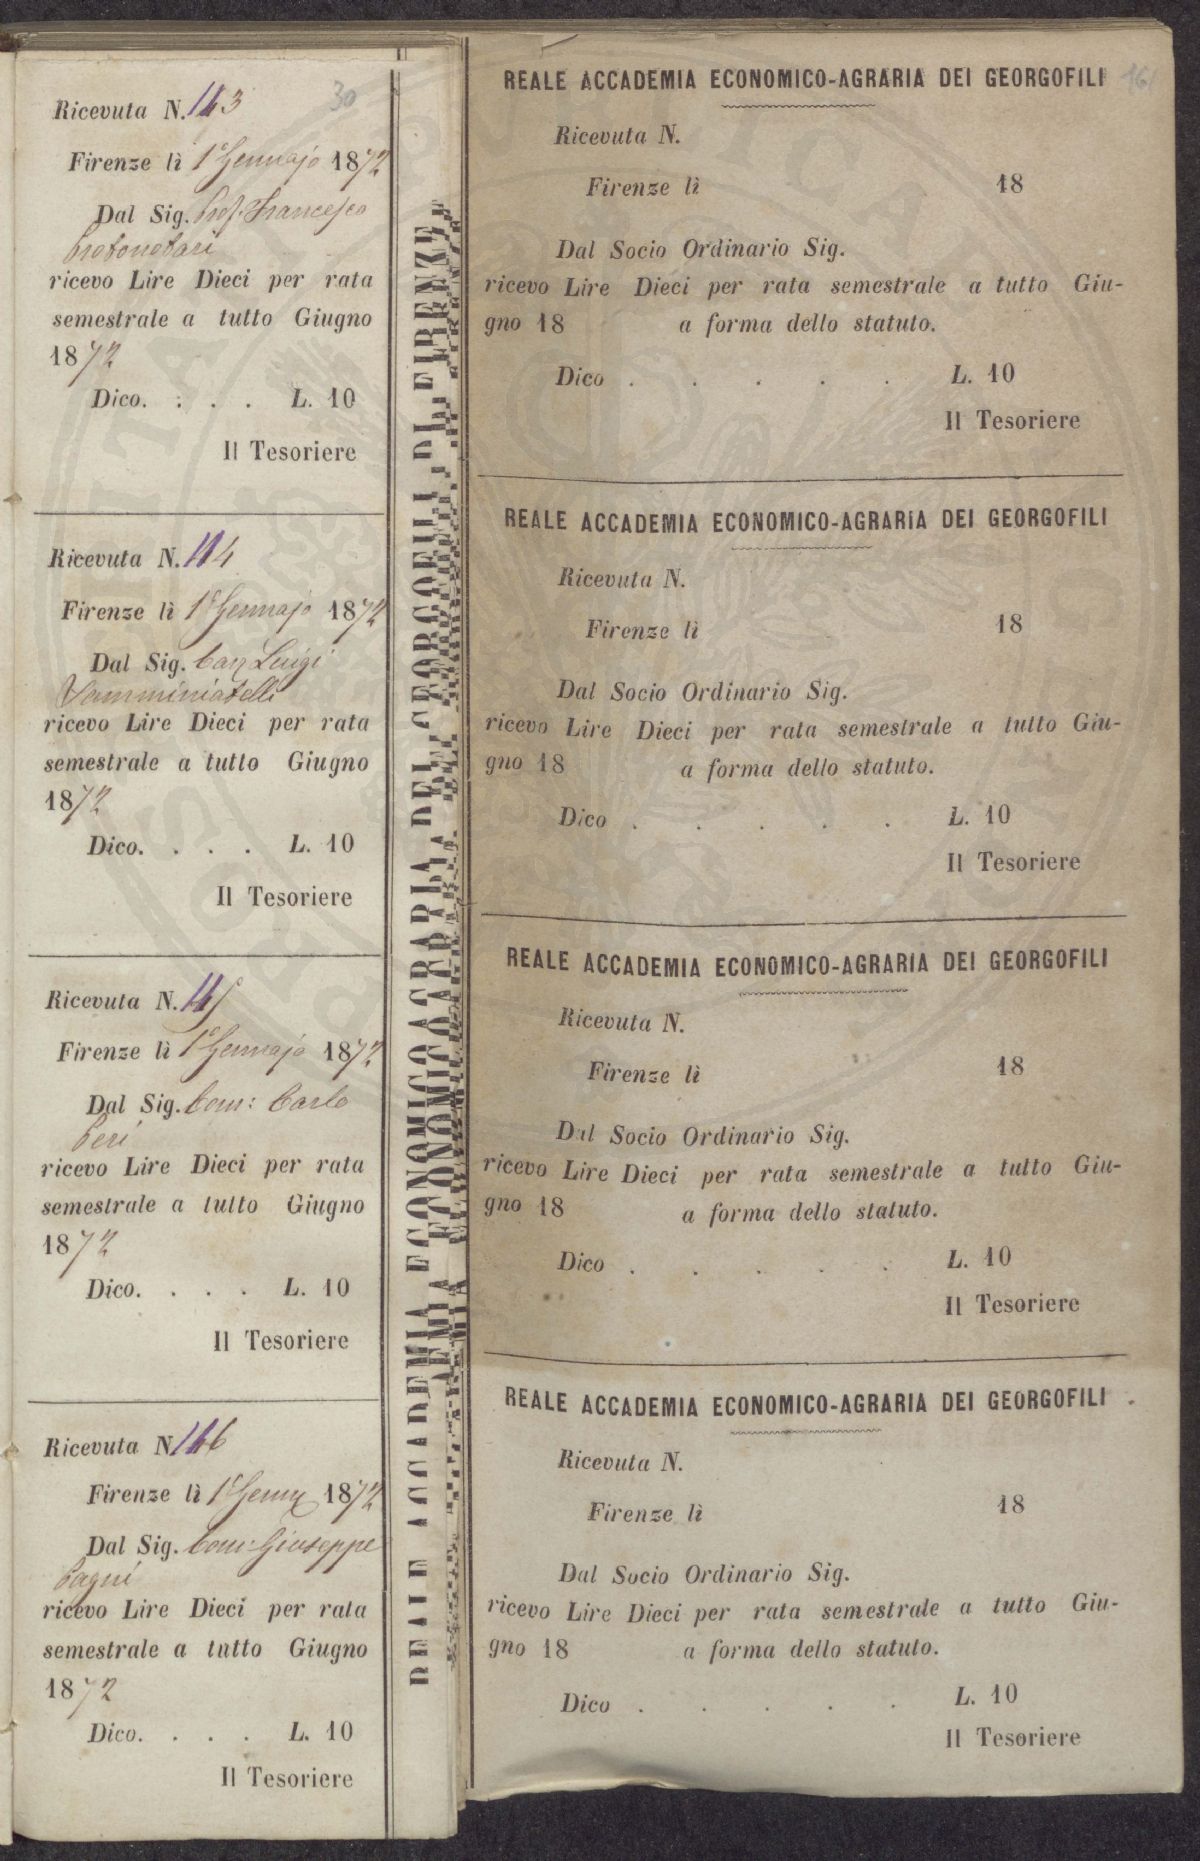 30
Ricevuta N. 143
Firenze lì 1° Gennajo 1872
Dal Sig. Prof. Francesco
Protonotari
ricevo Lire Dieci per rata
semestrale a tutto Giugno
1872
Dico. . . . L. 10
Il Tesoriere
Ricevuta N. 144
Firenze lì 1° Gennajo 1872
Dal Sig. Cav Luigi
Samminiatelli
ricevo Lire Dieci per rata
semestrale a tutto Giugno
1872
Dico. . . . L. 10
Il Tesoriere
Ricevuta N. 145
Firenze lì 1° Gennajo 1872
Dal Sig. Com: Carlo
Peri
ricevo Lire Dieci per rata
semestrale a tutto Giugno
1872
Dico. . . . L. 10
Il Tesoriere
Ricevuta N 146
Firenze lì 1° Genn 1872
Dal Sig. Com: Giuseppe
Pagni
ricevo Lire Dieci per rata
semestrale a tutto Giugno
1872
Dico. . . . L. 10
Il Tesoriere
REALE ACCADEMIA ECONOMICO AGRARIA DEI GEORGOFILI DI FIRENZE
161
REALE ACCADEMIA ECONOMICO-AGRARIA DEI GEORGOFILI
Ricevuta N.
Firenze lì 18
Dal Socio Ordinario Sig.
ricevo Lire Dieci per rata semestrale a tutto Giu-
gno 18 a forma dello statuto.
Dico . . . . . L. 10
Il Tesoriere
REALE ACCADEMIA ECONOMICO-AGRARIA DEI GEORGOFILI
Ricevuta N.
Firenze lì 18
Dal Socio Ordinario Sig.
ricevo Lire Dieci per rata semestrale a tutto Giu-
gno 18 a forma dello statuto.
Dico . . . . . L. 10
Il Tesoriere
REALE ACCADEMIA ECONOMICO-AGRARIA DEI GEORGOFILI
Ricevuta N.
Firenze lì 18
Dal Socio Ordinario Sig.
ricevo Lire Dieci per rata semestrale a tutto Giu-
gno 18 a forma dello statuto.
Dico . . . . . L. 10
Il Tesoriere
REALE ACCADEMIA ECONOMICO-AGRARIA DEI GEORGOFILI
Ricevuta N.
Firenze lì 18
Dal Socio Ordinario Sig.
ricevo Lire Dieci per rata semestrale a tutto Giu-
gno 18 a forma dello statuto.
Dico . . . . . L. 10
Il Tesoriere